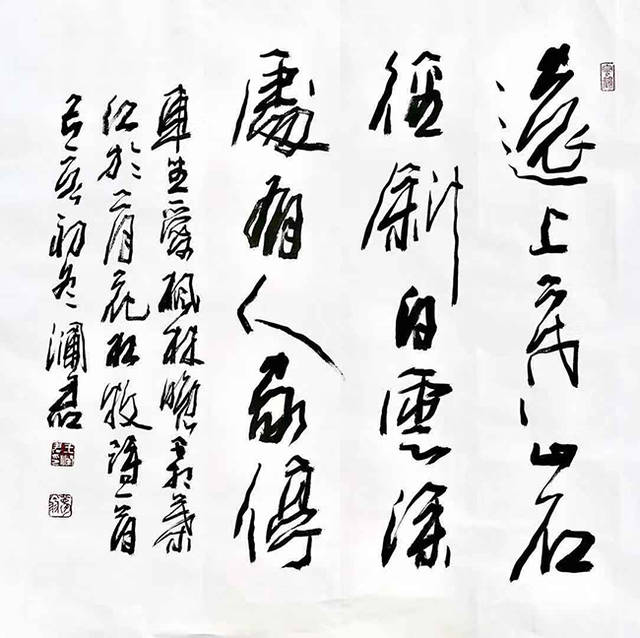 遠上寒山石
徑斜白雲深
處有人家停
車坐愛楓林晚霜葉
紅於二月花杜牧詩一首
初冬瀾君